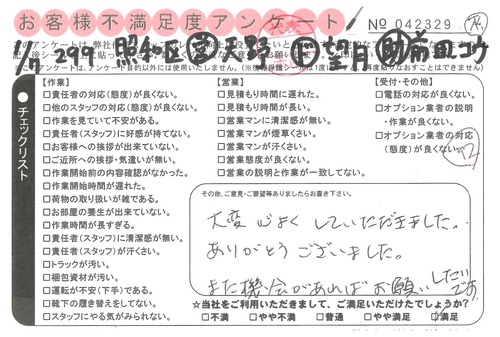 お客様不満足度アンケート
No 042329
1/7 299 照和区 天野 下 望月 助 前田コウ
【作業】
□責任者の対応(態度)が良くない。
□他のスタッフの対応(態度)が良くない。
□作業を見ていて不安がある。
□責任者(スタッフ)に好感が持てない。
□お客様への挨拶が出来ていない。
□ご近所への挨拶・気遣いが無い。
□作業開始前の内容確認がなかった。
□作業開始時間が遅れた。
□荷物の取り扱いが雑である。
□お部屋の養生が出来ていない。
□作業時間が長すぎる。
□責任者(スタッフ)に清潔感が無い。
□責任者(スタッフ)が汗くさい。
□トラックが汚い。
□梱包資材が汚い。
□運転が不安(下手)である。
□靴下の履き替えをしてない。
□スタッフにやる気がみられない。
【営業】
□見積もり時間に遅れた。
□見積もり時間が長い。
□営業マンに清潔感が無い。
□営業マンが煙草くさい。
□営業マンが汗くさい。
□営業態度が良くない。
□営業の説明と作業が一致してない。
【受付・その他】
□電話の対応が良くない。
□オプション業者の説明
・作業が良くない。
□オプション業者の対応
(態度)が良くない。
12
チェックリスト
その他、ご意見・ご要望等ありましたらお書き下さい。
大変心よくしていただきました。
ありがとうございました。
また機会があればお願いしたいです。
☆当社をご利用いただきまして、ご満足いただけたでしょうか?
□不満 □やや不満 □普通 □やや満足 □満足